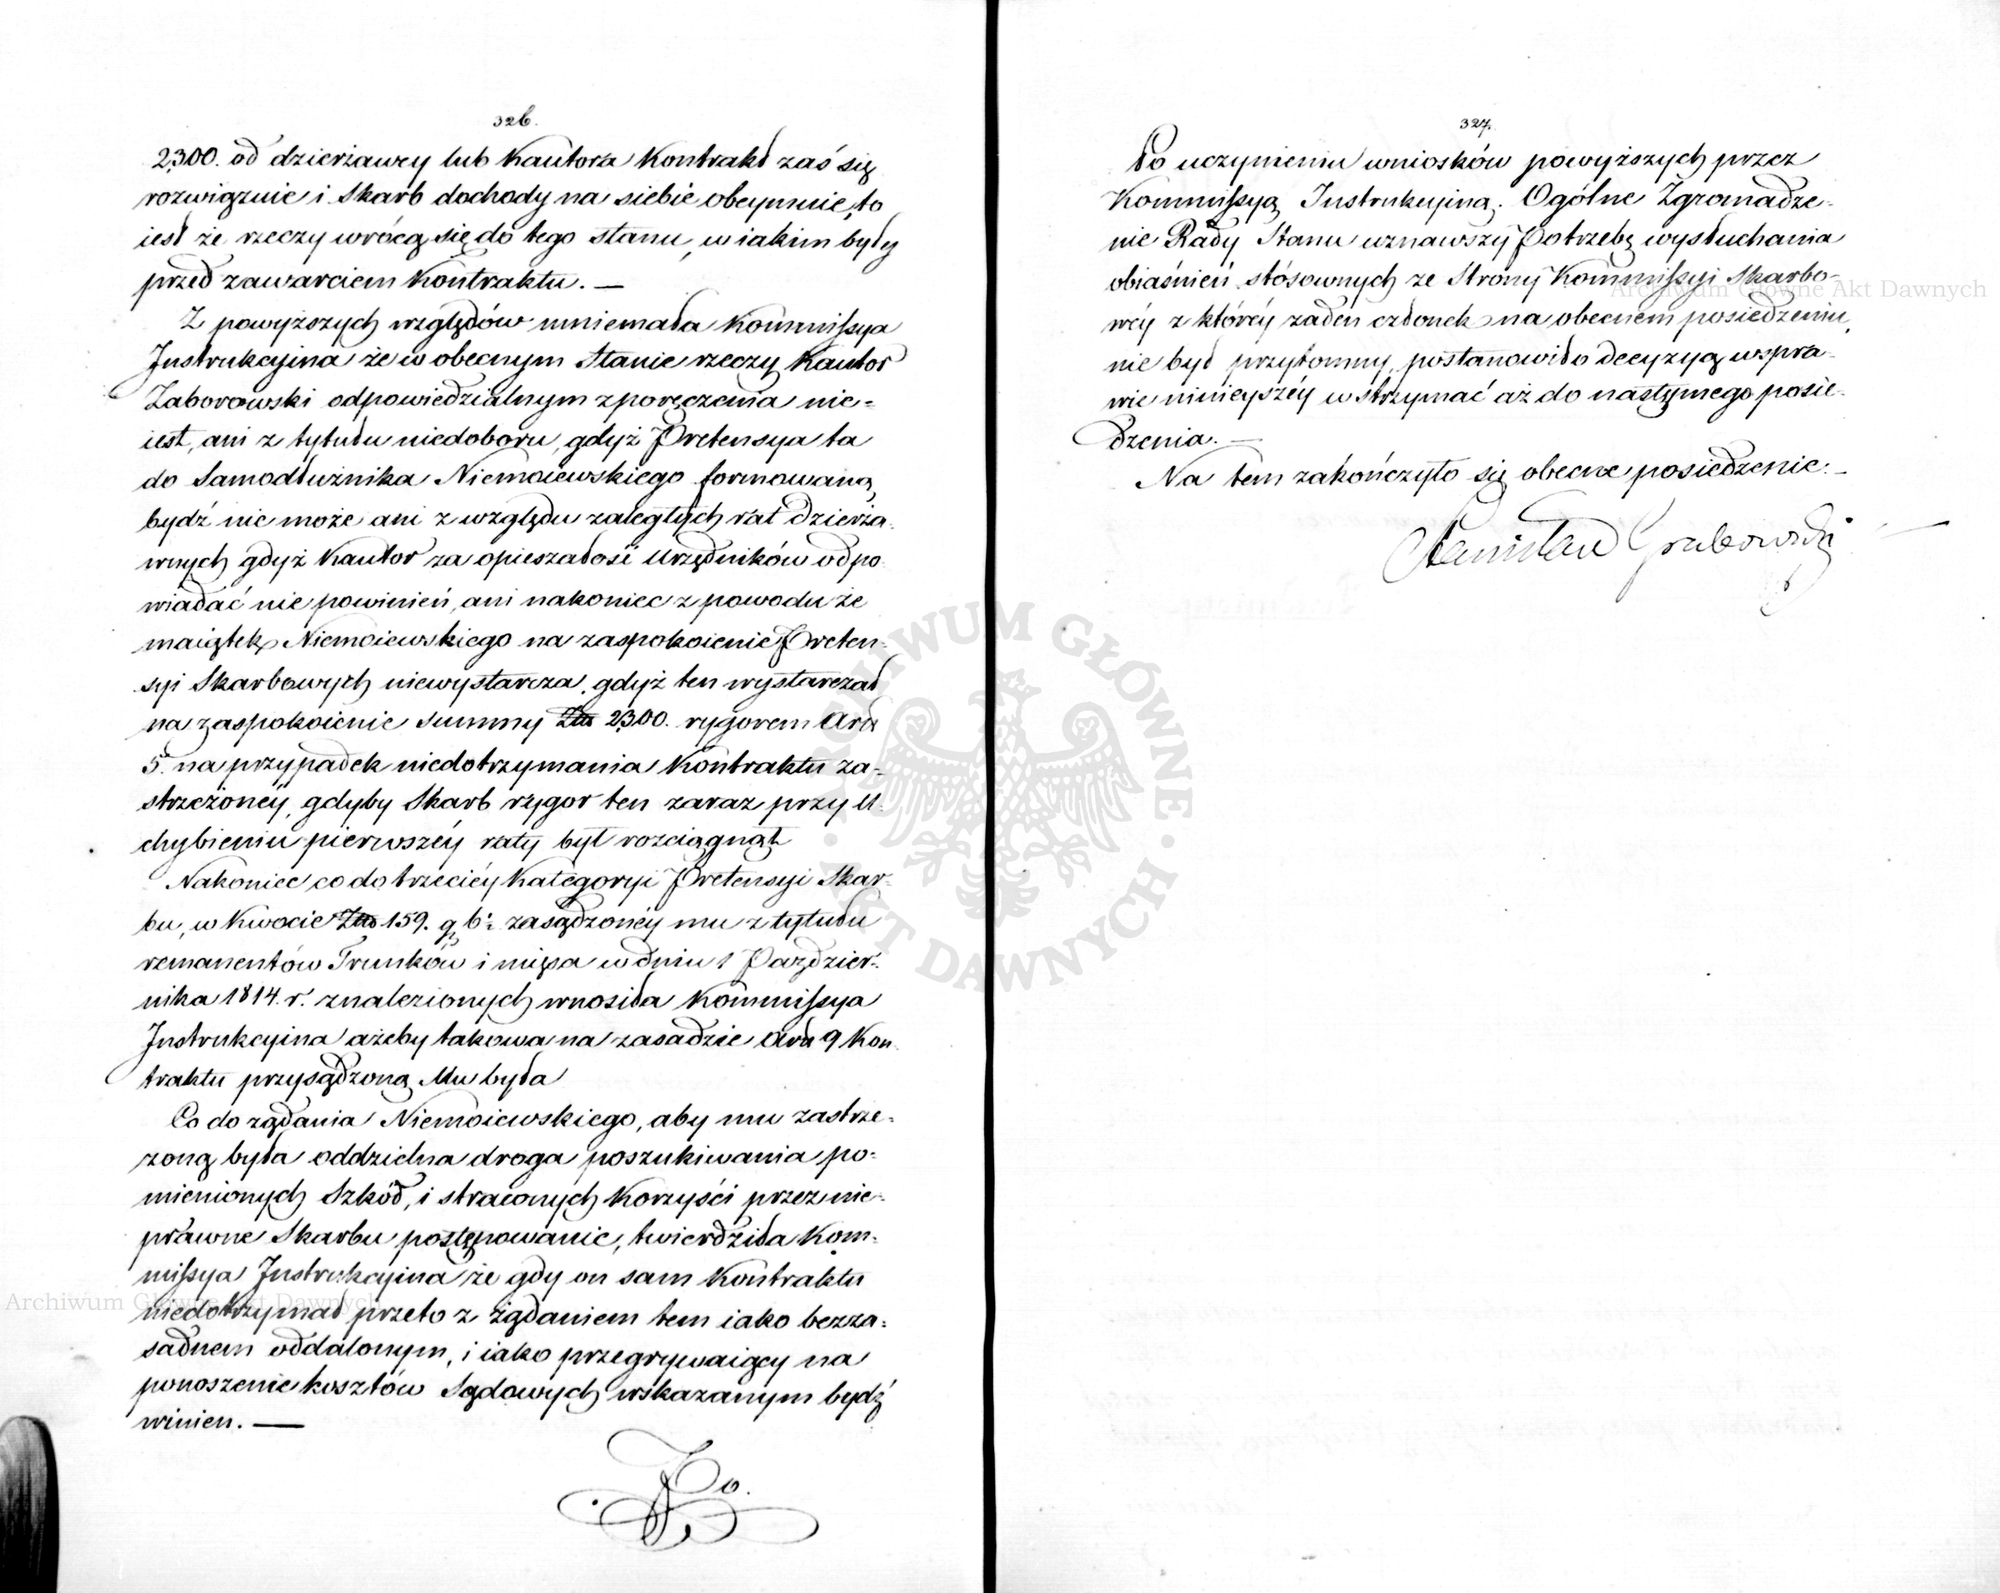 326.
2300. od dzierżawcy lub Kautora Kontrakt zaś się
rozwiąznie i Skarb dochody na siebie obeymuie, to
iest że rzeczy wrócą się do tego stanu, w iakim były
przed zawarciem Kontraktu. —
Z powyższych względów mniemała Kommissya
Instrukcyina że w obecnym Stanie rzeczy Kautor
Zaborowski odpowiedzialnym z poręczenia nie-
iest, ani z tytułu niedoboru, gdyż Pretensya ta
do Samodłużnika Niemoiewskiego formowaną
bydź nie może ani z względu zaległych rat dzierża-
wnych gdyż Kautor za opieszałość Urzędników odpo-
wiadać nie powinień, ani nakoniec z powodu że
maiątek Niemoiewskiego na zaspokoienie Preten-
syi Skarbowych niewystarcza, gdyż ten wystarczał
na zaspokoienie summy Złł 2300. rygorem Art
5. na przypadek niedotrzymania Kontraktu za-
strzeżonéy, gdyby Skarb rygor ten zaraz przy U-
chybieniu pierwszéy raty był rozciągnął
Nakoniec co do trzeciéy Kategoryi Pretensyi Skar-
bu, w Kwocie Złł 159. g. 6. zasądzonéy mu z tytułu
remanentów Trunków i mięsa w dniu 1 Paździer-
nika 1814. r. znalezionych wnosiła Kommissya
Instrukcyina ażeby takowa na zasadzie Art 9 Kon-
traktu przysądzoną Mu była
Co do żądania Niemoiewskiego, aby mu zastrze-
żoną była oddzielna droga poszukiwania po-
mienionych Szkód, i straconych Korzyści przez nie-
prawne Skarbu postępowanie, twierdziła Kom-
missya Instrukcyina że gdy on sam Kontraktu
niedotrzymał przeto z żądaniem tem iako bezza-
sadnem oddalonym, i iako przegrywaiący na
ponoszenie kosztów Sądowych wskazanym bydź
winien. —
Po.
327.
Po uczynieniu wniosków powyższych przez
Kommissyą Instrukcyiną. Ogólne Zgromadze-
nie Rady Stanu uznawszy Potrzebę wysłuchania
obiaśnień stósownych ze Strony Kommissyi Skarbo-
wéy z któréy żaden członek na obecnem posiedzeniu
nie był przytomny, postanowiło decyzyą w spra-
wie ninieyszéy wstrzymać aż do następnego posie-
dzenia. —
Na tem zakończyło się obecne posiedzenie. —
Stanisław Grabowski
ARCHIWUM GŁÓWNE AKT DAWNYCH
Archiwum Główne Akt Dawnych
Archiwum Główne Akt Dawnych